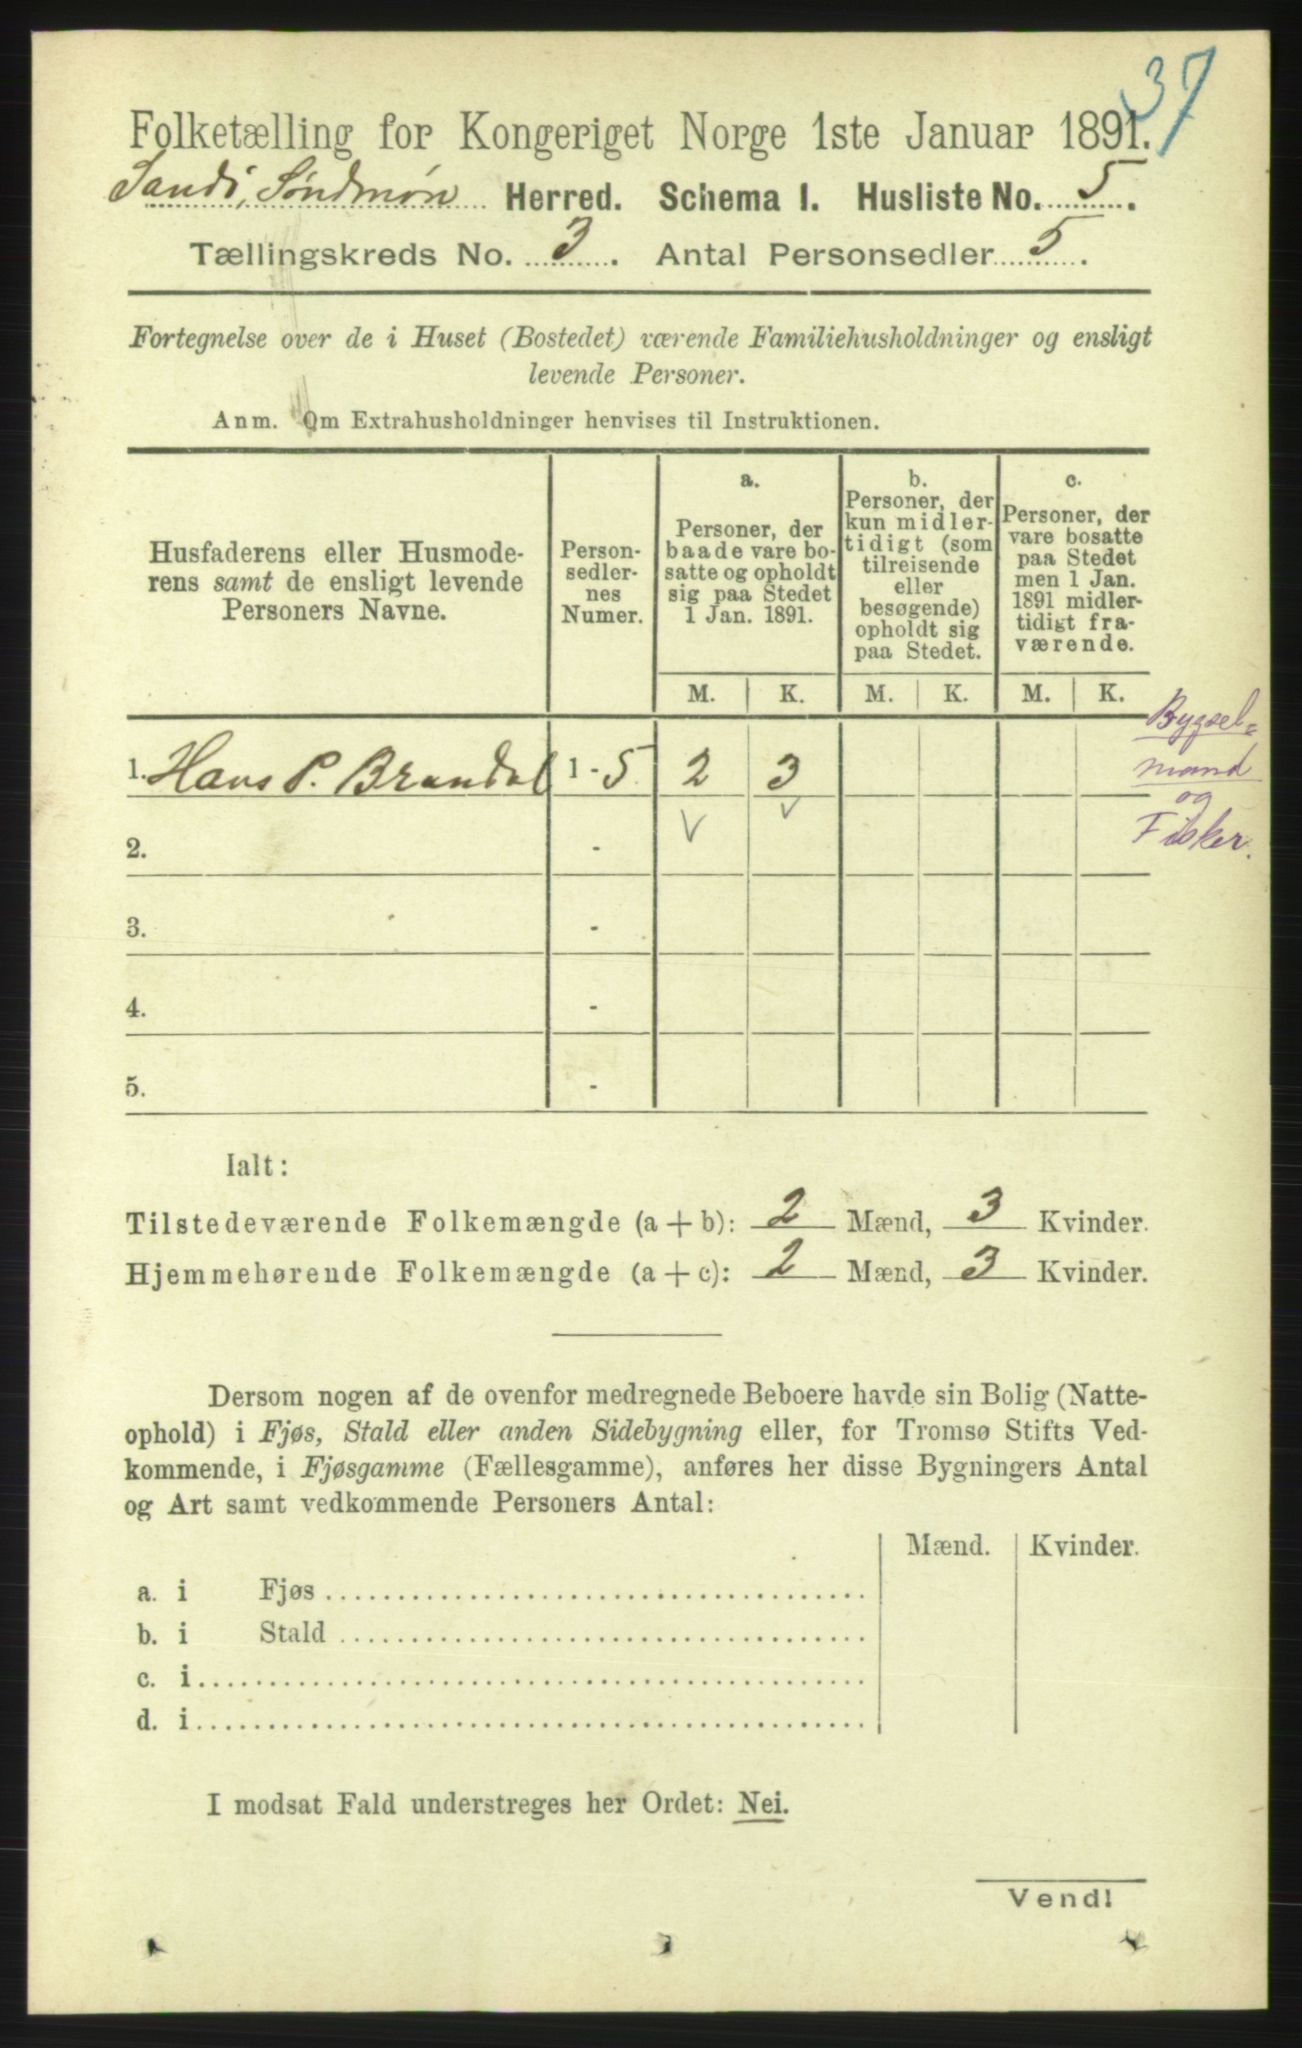 37
Folketælling for Kongeriget Norge 1ste Januar 1891.
Sandi, Søndmør Herred. Schema I. Husliste No. 5.
Tællingskreds No. 3. Antal Personsedler 5.
Fortegnelse over de i Huset (Bostedet) værende Familiehusholdninger og ensligt
levende Personer.
Anm. Om Extrahusholdninger henvises til Instruktionen.
Husfaderens eller Husmode-
rens samt de ensligt levende
Personers Navne.
Person-
sedler-
nes
Numer.
a.
Personer, der
baade vare bo-
satte og opholdt
sig paa Stedet
1 Jan. 1891.
b.
Personer, der
kun midler-
tidigt (som
tilreisende
eller
besøgende)
opholdt sig
paa Stedet.
c.
Personer, der
vare bosatte
paa Stedet
men 1 Jan.
1891 midler-
tidigt fra-
værende.
M. K. M. K. M. K.
1. Hans P. Brandal 1 - 5 2 3
Bygsel=
mand
og
Fisker.
2. -
3. -
4. -
5. -
Ialt:
Tilstedeværende Folkemængde (a + b): 2 Mænd, 3 Kvinder.
Hjemmehørende Folkemængde (a + c): 2 Mænd, 3 Kvinder.
Dersom nogen af de ovenfor medregnede Beboere havde sin Bolig (Natte-
ophold) i Fjøs, Stald eller anden Sidebygning eller, for Tromsø Stifts Ved-
kommende, i Fjøsgamme (Fællesgamme), anføres her disse Bygningers Antal
og Art samt vedkommende Personers Antal:
Mænd. Kvinder.
a. i Fjøs
b. i Stald
c. i
d. i
I modsat Fald understreges her Ordet: Nei.
Vend!